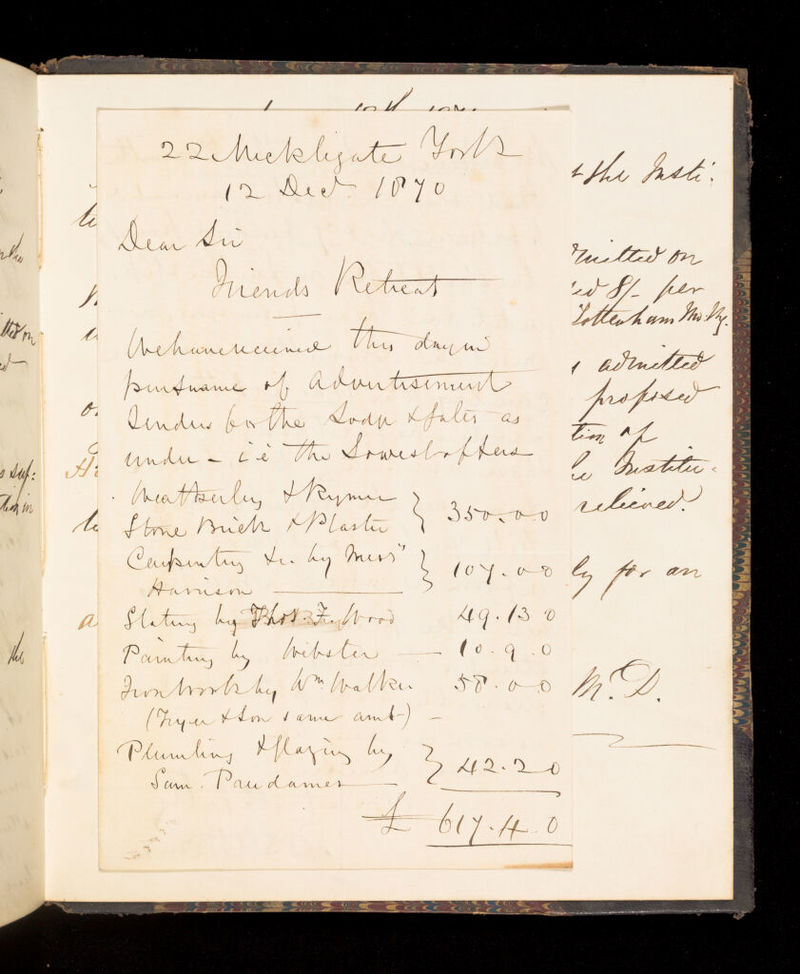 22 Micklegate York
12 Decr. 1870
Dear Sir
Friends Retreat
We have received this day in
pursuance of advertisement
Tenders for the Lodge & Gates as
under - i.e the Lowest offers
Weatherley & Rymer
Stone Brick & Plaster } 350.0.0
Carpentry &c. by Messrs
Harrison } 107.0.0
Slating by Thos. F. Wood 49.13 0
Painting by Webster — 10.9.0
Iron Work by Wm Walker 58.0.0
(Fryer & Son same amt) -
Plumbing & glazing by
Sam. } 42.2 0
£ 617.4.0
t the Insti:
dmitted on
8/- per
Tottenham
admitted
proposed
tion of
Institu-
relieved.
ly for an
M.D.